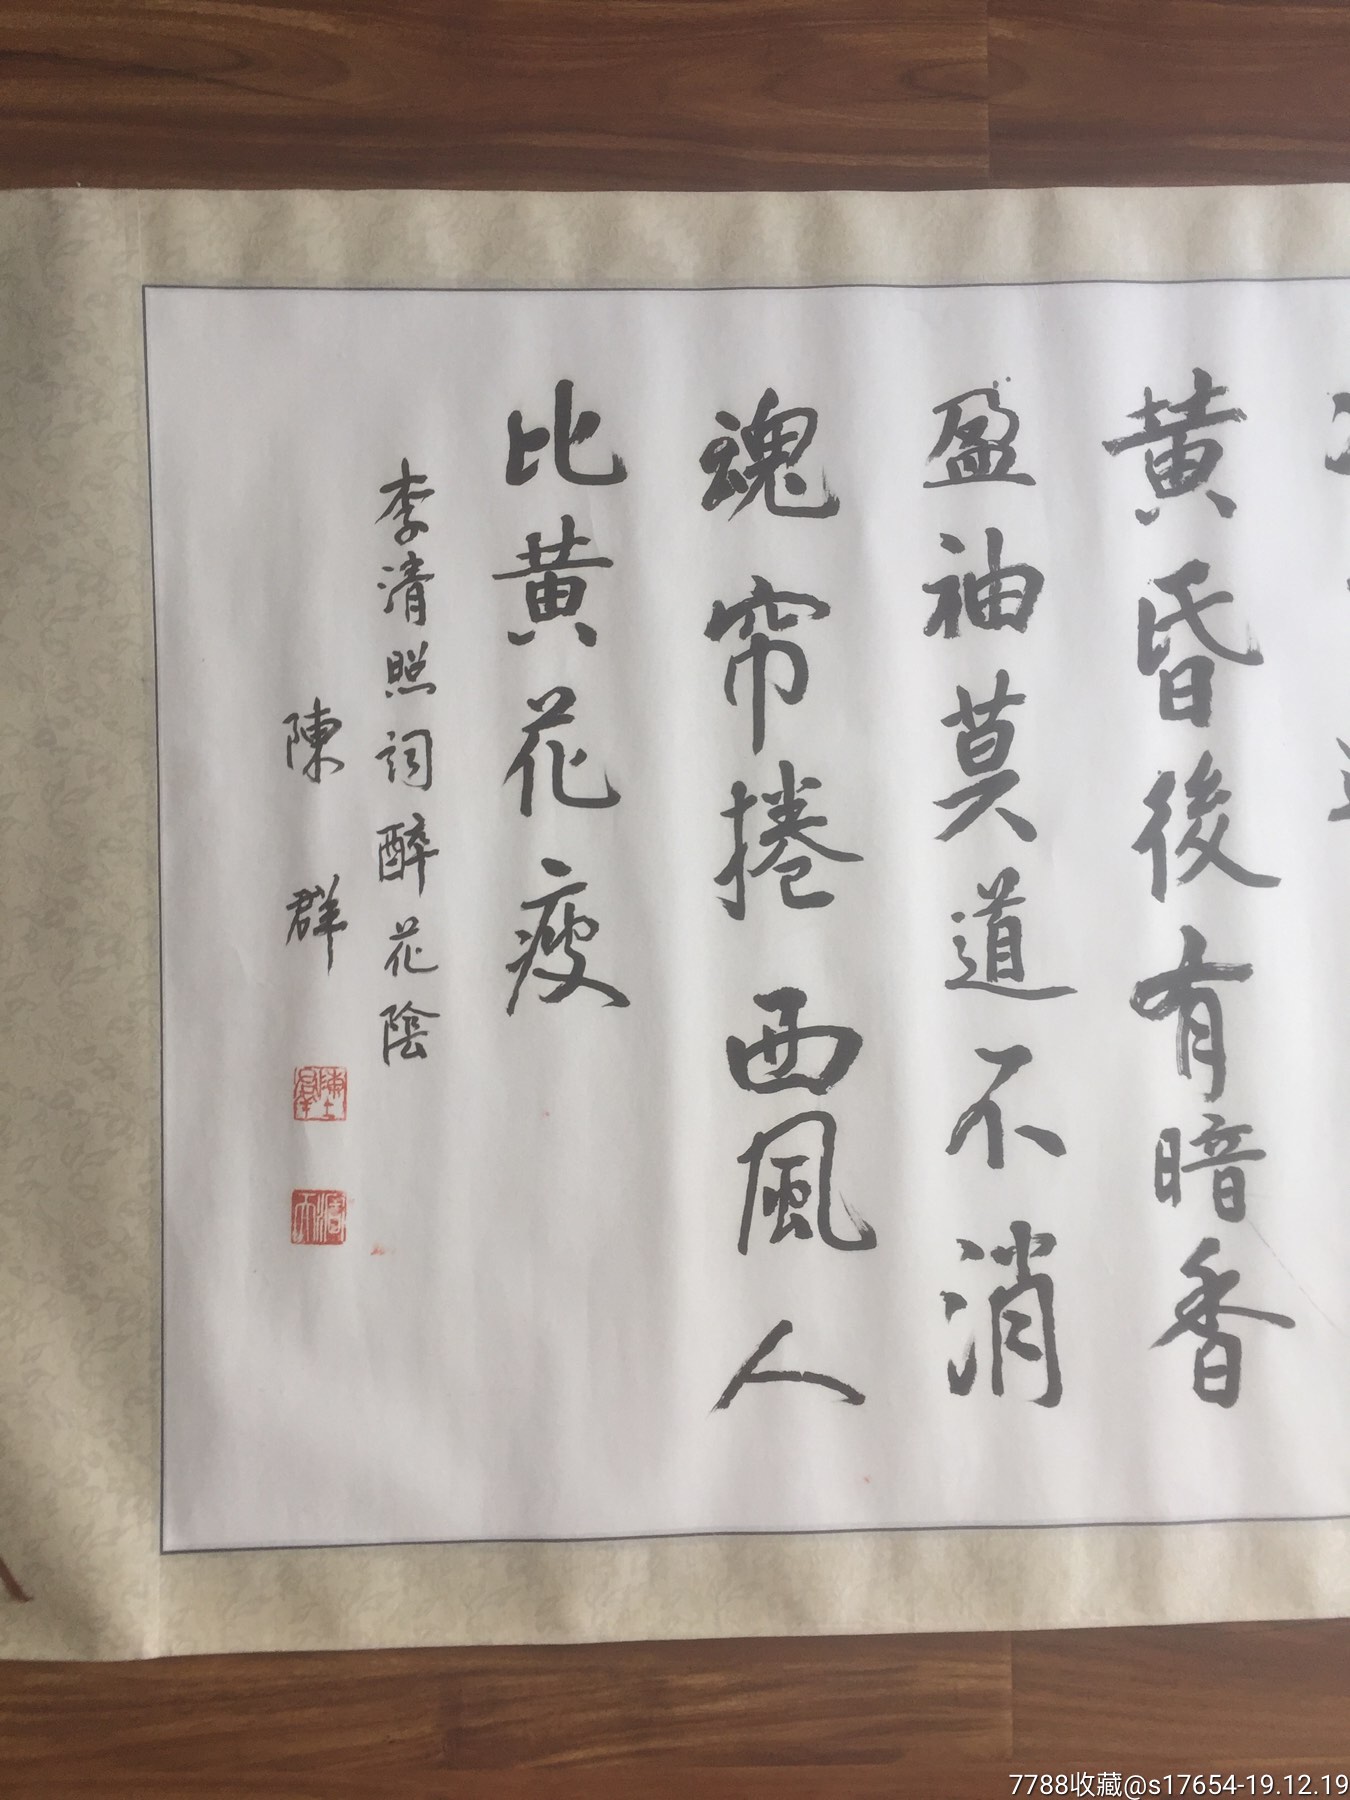 黄昏後有暗香
盈袖莫道不消
魂帘捲西風人
比黄花瘦
李清照词醉花陰
陳群
7788收藏@s17654-19.12.19